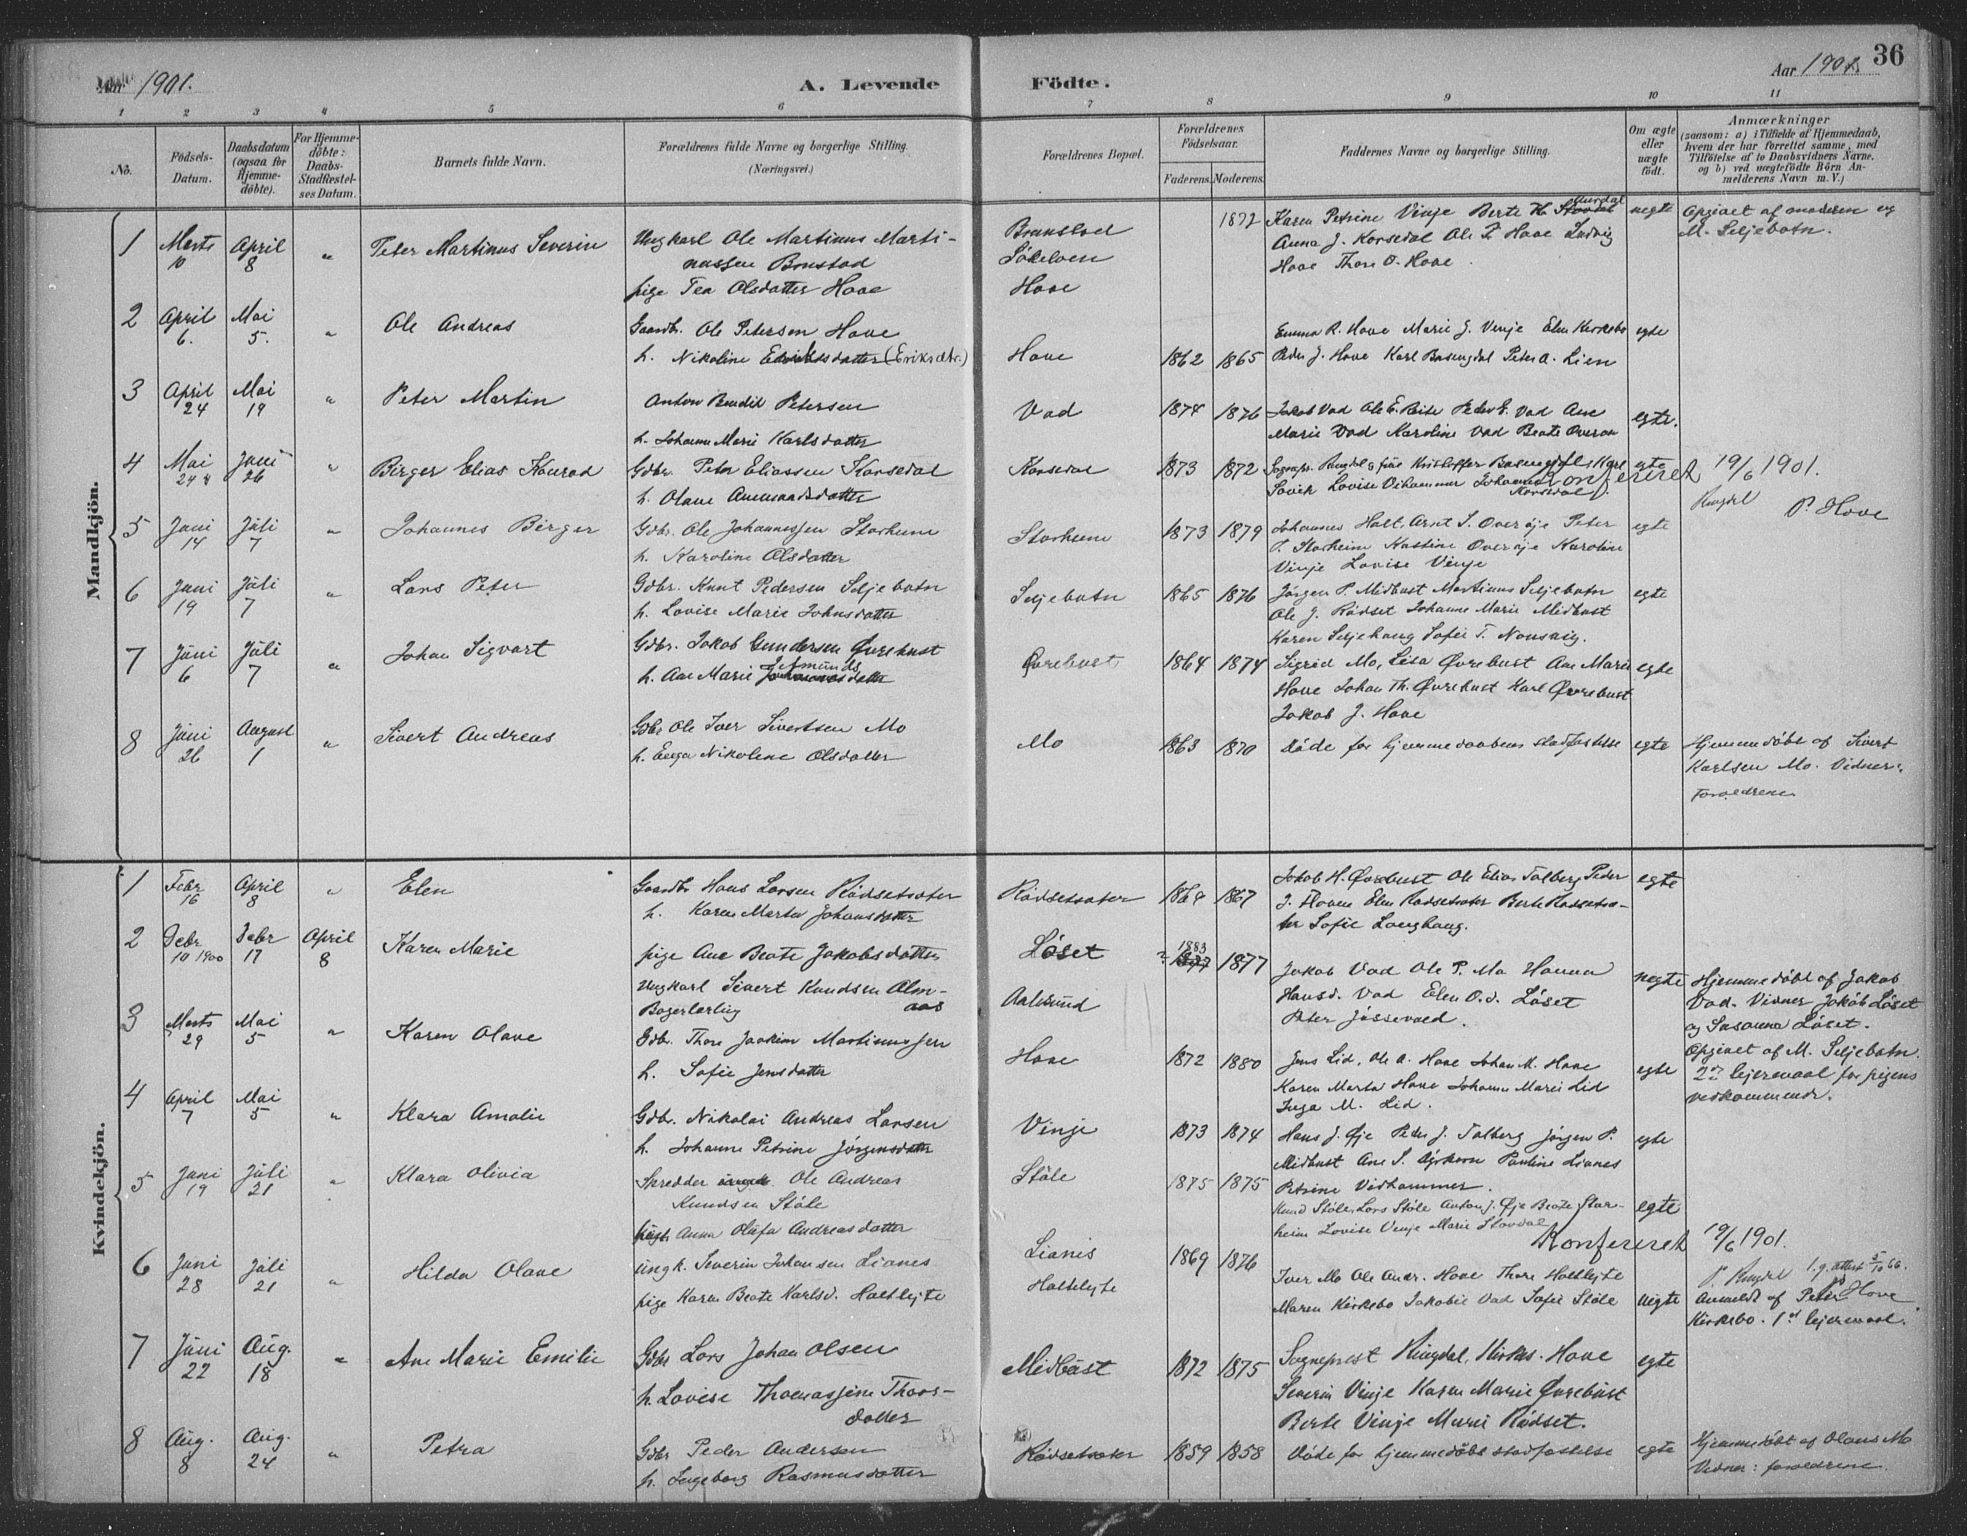 Aar 1901. A. Levende Födte. Aar 1901. 36
1 2 3 4 5 6 7 8 9 10 11
No. Födsels-Datum. Daabsdatum (ogsaa for Hjemme-döbte). For Hjemme-döbte: Daabs-Stadfæstel-ses Datum. Barnets fulde Navn. Forældrenes fulde Navne og borgerlige Stilling. (Næringsvei.) Forældrenes Bopæl. Forældrenes Födselsaar. Faderens. Moderens. Faddernes Navne og borgerlige Stilling. Om ægte eller uægte födt. Anmærkninger (saasom: a) i Tilfælde af Hjemmedaab, hvem der har forrettet samme, med Tilföielse af to Daabsvidners Navne, og b) ved uægtefödte Börn Anmelderens Navn m. V.)
Mandkjön.
1 Marts 10 April 8 " Peter Martinus Severin Ungkarl Ole Martinus Marti- 1872 Karen Petrine Vinje Berte H. uegte Opgivet af moderen og
nussen Bonstad Sökelven Anna J. Korsedal Ole P. Hove Ludvig M. Seljebotn.
pige Tea Olsdatter Hove Hove Hove Thore O. Hove.
2 April 6. Mai 5. " Ole Andreas Gaardbr. Ole Petersen Hove Emma R. Hove Marie J. Vinje Elen Kirksbø egte
h. Nikoline (Eriksdtr.) Hove 1862 1865 Peder J. Hove Karl Basengdal Peter A. Lien
3 April 24 Mai 19 " Peter Martin Anton Bendik Petersen Vad 1874 1876 Jakob Vad Ole E. Peder E. Vad Ane egte.
h. Johanne Marie Karlsdatter Marie Vad Karoline Vad Beate
4 Mai 24 Juni 26 " Birger Elias Konrad Gdbr. Peter Eliassen Korsedal Korsedal 1873 1872 Sognepr. Ringdal & frue Kristoffer Karl egte 19/6 1901.
h. Olave Lovise Vikhammer Korsedal Konfereret Ringdal P. Hove
5 Juni 14 Juli 7 " Johannes Birger Gdbr. Ole Johannessen Storheim Storheim 1873 1879 Johannes Holt Arnt S. Overøje Peter egte
h. Karoline Olsdatter P. Storheim Nastine Overøje Karoline
Vinje Lovise Vinje
6 Juni 19 Juli 7 " Lars Peter Gdbr. Knut Pedersen Seljebotn Seljebotn 1865 1876 Jørgen P. Midbust Martinus Seljebotn egte
h. Lovise Marie Johnsdatter Ole J. Rödset Johanne Marie Midbust
Karen Seljehaug Sofie T.
7 Juni 6 Juli 7 " Johan Sigvart Gdbr. Jakob Gundersen Øvrebust Øvrebust 1864 1874 Sigrid Mo, Lisa Øvrebust Ane Marie egte
h. Ane Marie Hove Johan Th. Øvrebust Karl Øvrebust
Jakob J. Hove
8 Juni 26 August 1 " Sivert Andreas Gdbr. Ole Iver Sivertsen Mo Mo 1863 1870 Døde før hjemmedaabens stadfæstelse egte Hjemmedøbt af Sivert
h. Nikoline Olsdatter Karlsen Mo. Vidner:
Forældrene
Kvindekjön.
1 Febr 16 April 8 " Elen Gaardbr Hans Larsen Rödsetsæter Rödsetsæter 1864 1867 Jakob H. Øvrebust Ole Elias Talberg Peder egte
h. Karen Marta Johansdatter J. Floven Elen Rödsetsæter Berte Rödsetsæ-
ter Sofie Langhaug.
2 Febr 10 1900 Febr 17 April 8 Karen Marie pige Ane Beate Jakobsdatter Løset 1883 1877 Jakob Vad Ole P. Mo Hanna uegte Hjemmedøbt af Jakob
Ungkarl Sivert Knudsen Alm- Aalesund Hansd. Vad Elen O.d. Løset Vad. Vidner Jakob Løset
Bagerlærling aas Peter Jøssevold. og Susanna Løset.
3 Marts 29 Mai 5 " Karen Olave Gdbr. Thore Joakim Martinussen Hove 1872 1880 Jens Lid, Ole A. Hove Johan M. Hove egte Opgivet af M. Seljebotn.
h. Sofie Jensdatter Karen Marta Hove Johanne Marie Lid 2det leiermaal for pigens
Inga M. Lid. vedkommende.
4 April 7 Mai 5 " Klara Amalie Gdbr. Nikolai Andreas Larsen Vinje 1873 1874 Hans J. Øje Peder J. Talberg Jørgen P. egte
h. Johanne Petrine Jørgensdatter Midbust Ane S. Pauline Lianes
Petrine Vidhammer.
5 Juni 19 Juli 21 " Klara Olivia Ole Andreas Støle 1875 1875 Knud Støle, Lars Støle Anton J. Øje Beate Stor- egte
Knudsen Støle heim Lovise Vinje Marie
Anna Olufa Andreasdatter Konfereret 19/6 1901.
6 Juni 28 Juli 21 " Hilda Olave ungk. Severin Johansen Lianes Lianis 1869 1876 Iver Mo Ole Andr. Hove Thore Holtlejte uegte P. Ringdal P. Hove 1.g. attest 5/10 66.
pige Karen Beate Karlsd. Holtlejte Holtlejte Maren Kirksbo Jakobie Vad Sofie Støle Anmeldt af Peter
Kirksbo. 1st lejermaal.
7 Juni 22 Aug. 18 " Ane Marie Emilie Gdbr Lars Johan Olsen Midbust 1872 1875 Sogneprest Ringdal, Kirks. Hove egte
h. Lovise Thomassine Thors- Severin Vinje Karen Marie Øvrebust
datter Berte Vinje Marie Rödset.
8 Aug. 8 Aug. 24 " Petra Gdbr Peder Andersen Rödsetsæter 1859 1858 Døde før hjemmedøbt stadfæstelse egte Hjemmedøbt af Olaus Mo
h. Ingeborg Rasmusdatter Vidner: forældrene.